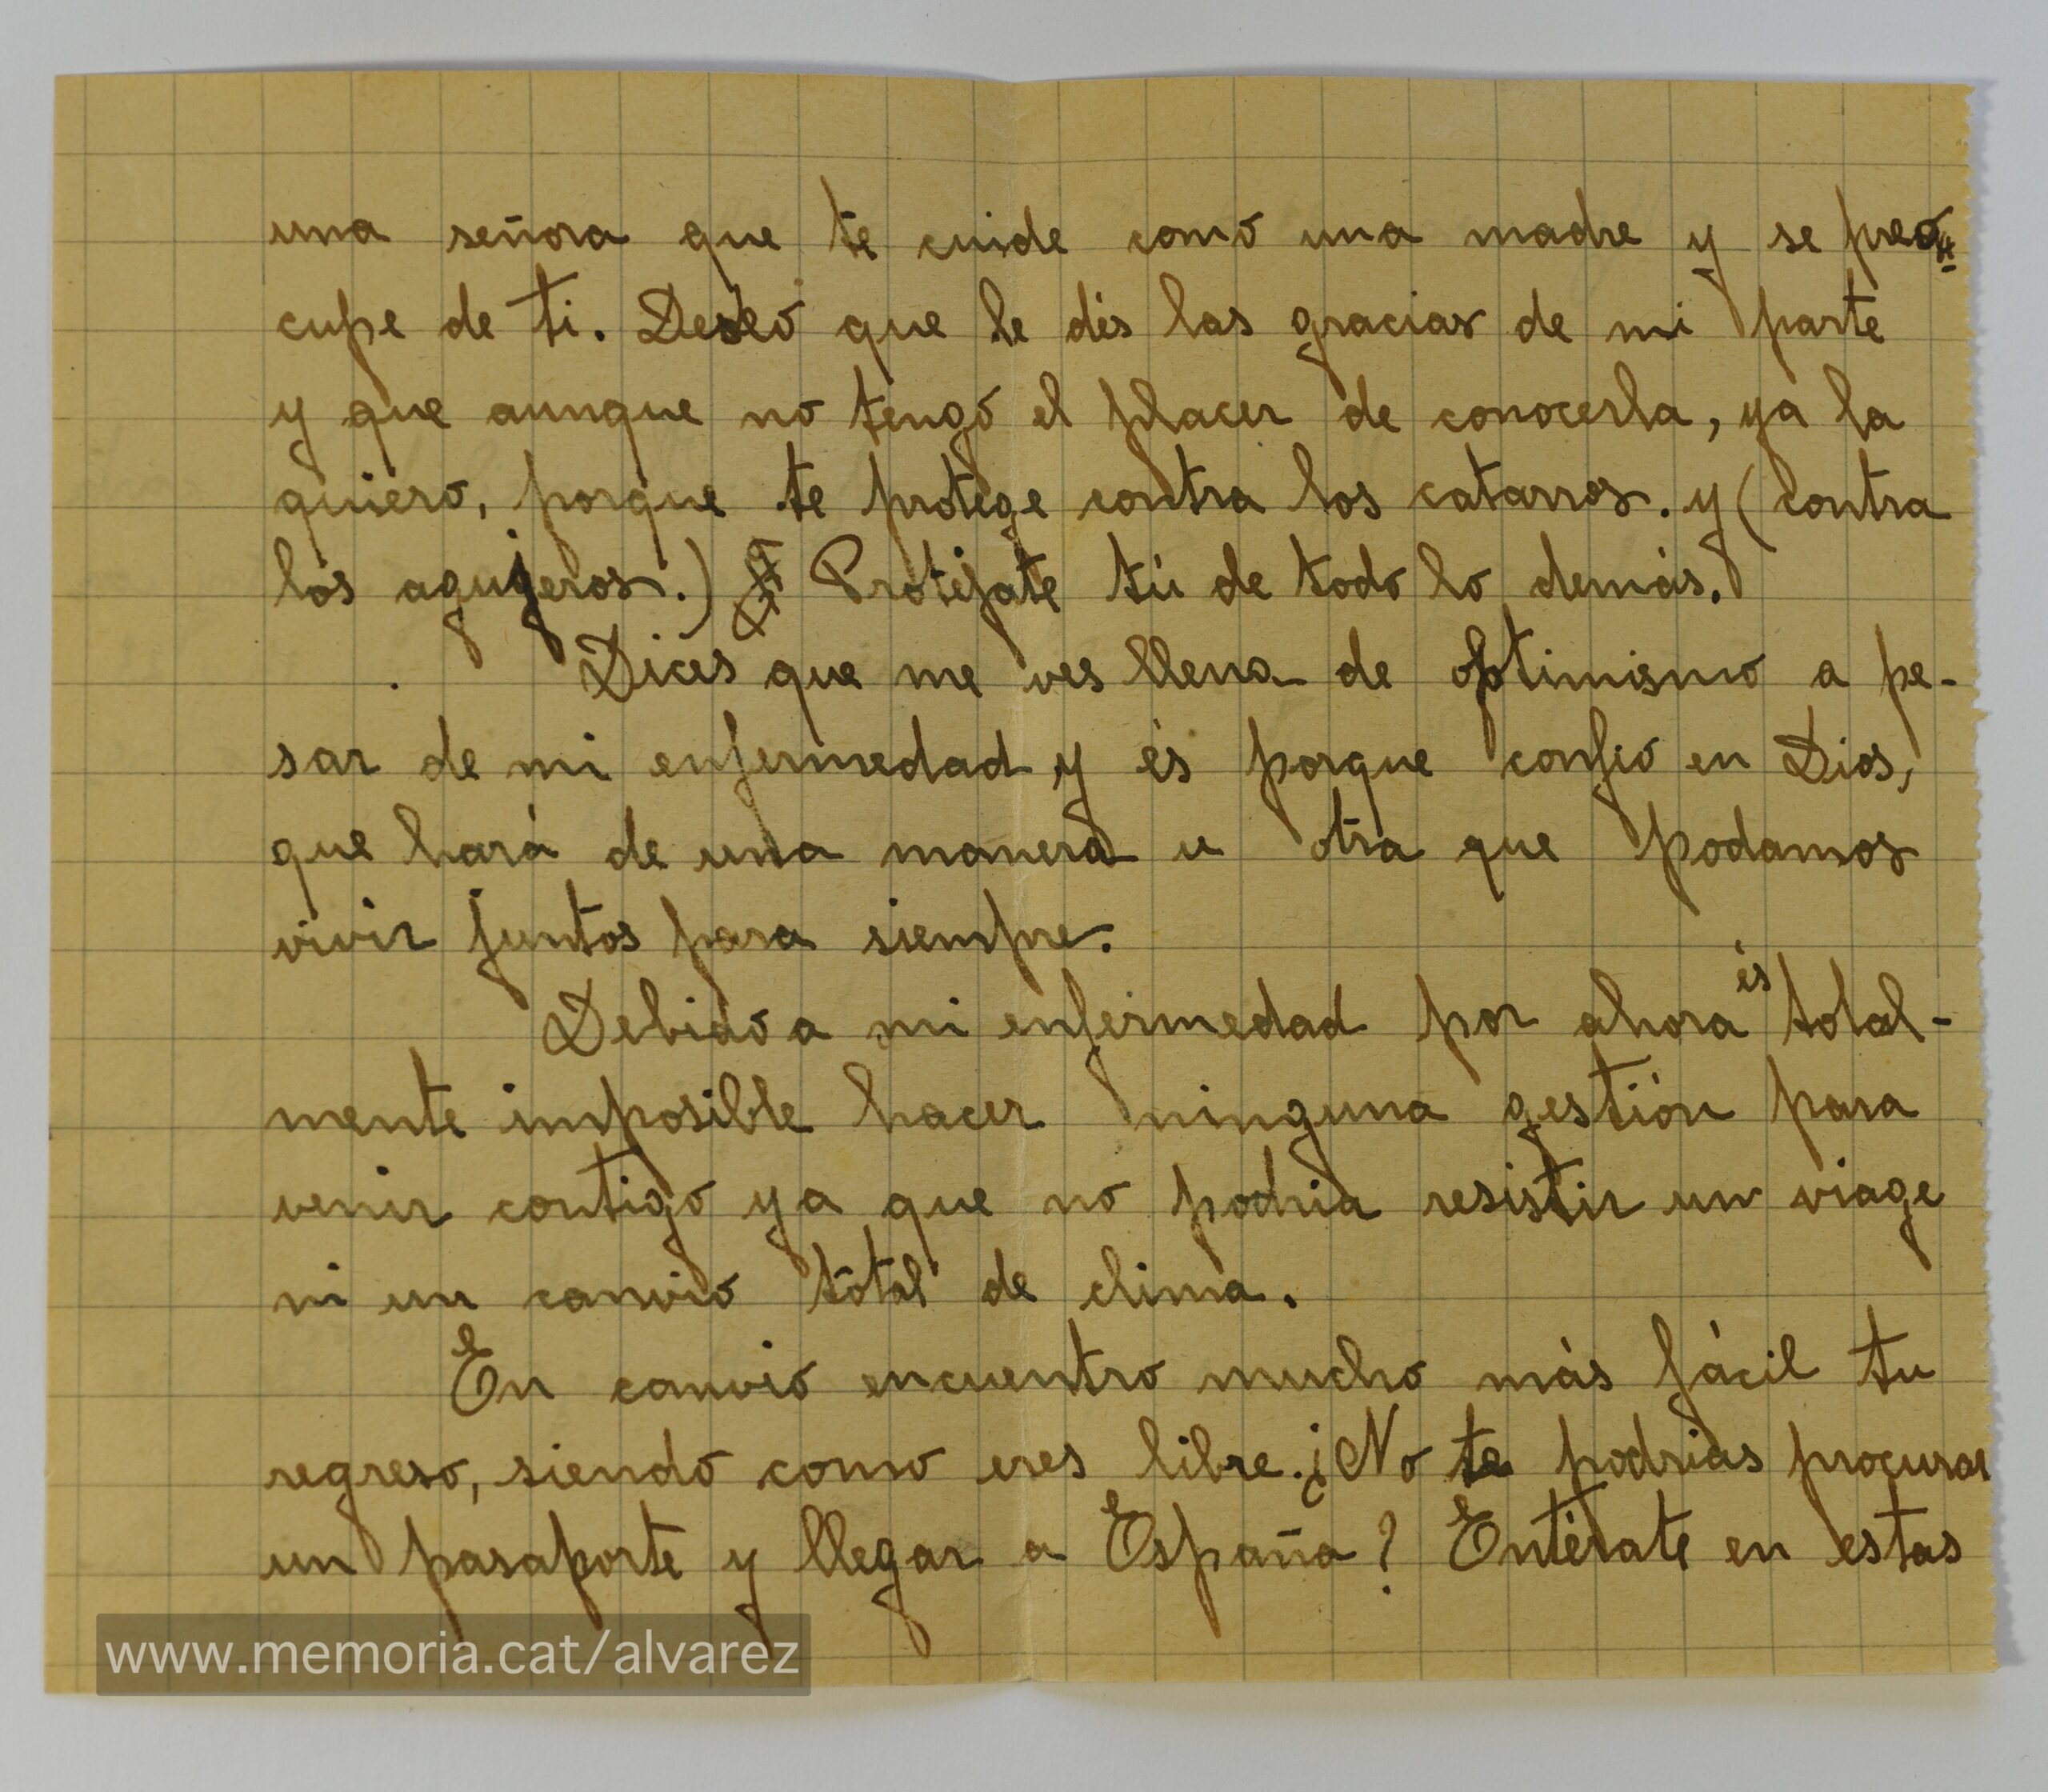 una señora que te cuide como una madre y se preo-
cupe de ti. Deseo que le dés las gracias de mi parte
y que aunque no tengo el placer de conocerla, ya la
quiero, porque te protege contra los catarros. y (contra
los agujeros.) Protéjate tú de todo lo demás.
Dices que me ves llena de optimismo a pe-
sar de mi enfermedad y és porque confio en Dios,
que hará de una manera u otra que podamos
vivir juntos para siempre.
Debido a mi enfermedad por ahora és total-
mente imposible hacer ninguna gestión para
venir contigo ya que no podria resistir un viage
ni un canvio total de clima.
En canvio encuentro mucho más fácil tu
regreso, siendo como eres libre. ¿No te podrias procurar
un pasaporte y llegar a España? Entérate en estas
www.memoria.cat/alvarez